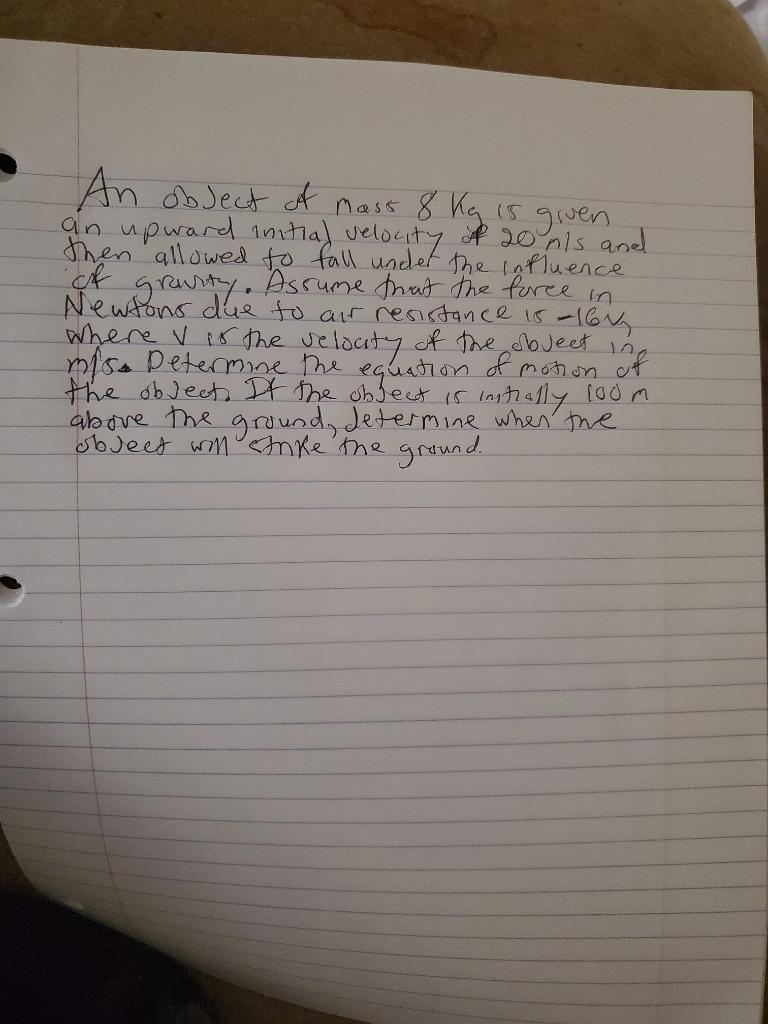 An object of mass 8 Kg is given
an upward initial velocity of 20 m/s and
then allowed to fall under the influence
of gravity. Assume that the force in
Newtons due to air resistance is -16v,
where v is the velocity of the object in
m/s. Determine the equation of motion of
the object. If the object is initially 100 m
above the ground, determine when the
object will strike the ground.